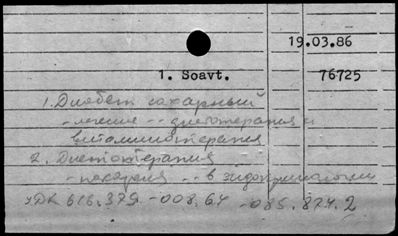 19.03.86
1. Soavt. 76725
1. Диабет сахарный
- лечение -- диетотерапия и
витаминотерапия
2. Диетотерапия
- -- в эндокринологии
УДК 616.379-008.64-085.874.2